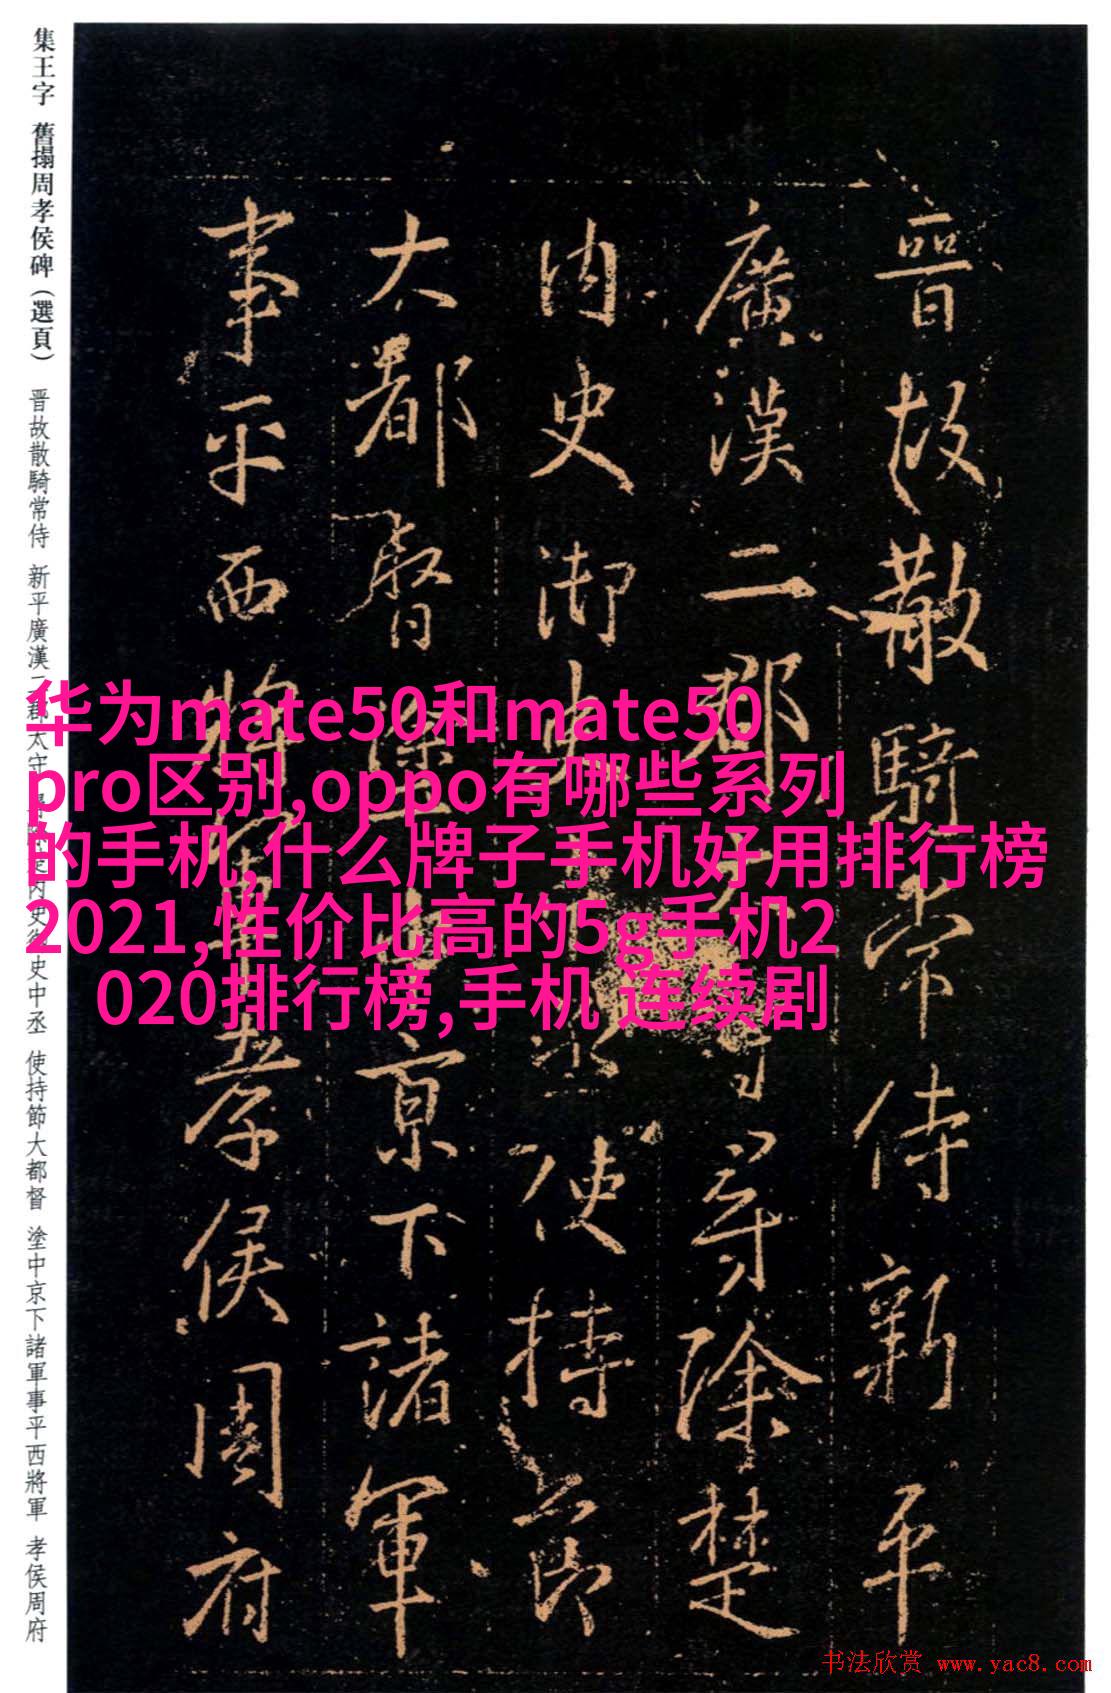 晉故散騎常侍新平
廣漢二郡太守尋除楚
内史御史中丞使持節
大都督塗中京下諸軍
事平西將軍孝侯周府
集王字 舊搨周孝侯碑（選頁） 晋故散騎常侍 新平廣漢二郡太守 尋除楚内史御史中丞 使持節大都督 塗中京下諸軍事平西將軍 孝侯周府
华为mate50和mate50
pro区别,oppo有哪些系列
的手机,什么牌子手机好用排行榜
2021,性价比高的5g手机2
020排行榜,手机 连续剧
书法欣赏 www.yac8.com